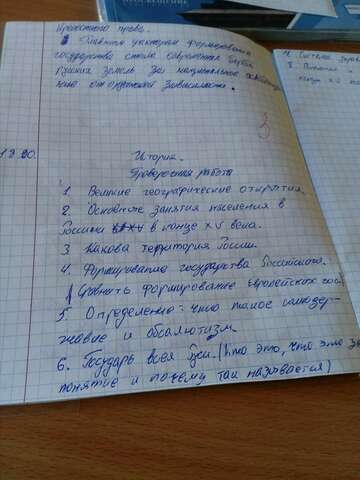 ПРОСВЕЩЕНИЕ
Крепостного права.
Главным фактором формирования
государства стала совместная борьба
русских земель за национальное освобожд
ение от ордынской зависимости.
3
1.9.20.
История.
Проверочная работа
1. Великие географические открытия.
2. Основные занятия населения в
России в конце XV века.
3. Какова территория России.
4. Формирование государства Российского.
(Сравнить формирование Европейских гос
5. Определение: что такое самодер-
жавие и абсалютизм
6. Государь всея Руси. (Что это, что это за
понятие и почему так называется)